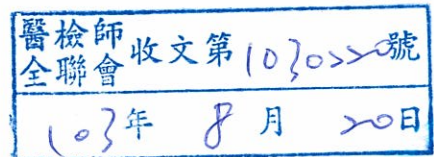 醫檢師全聯會收文第1030220號
103年 8月 20日